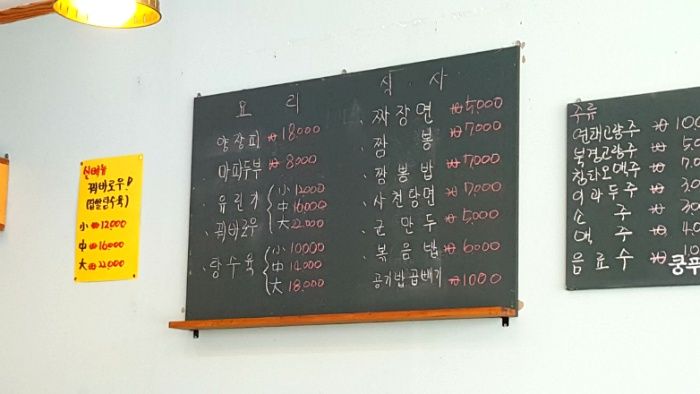 신메뉴
꿔바로우!
(찹쌀탕수육)
小 ₩12,000
中 ₩16,000
大 ₩22,000
요 리
양장피 ₩18,000
마파두부 ₩8000
유린기
꿔바로우
小 12000
中 16,000
大 22,000
탕수육
小 10000
中 14,000
大 18,000
식 사
짜장면 ₩5,000
짬 뽕 ₩7,000
짬뽕밥 ₩7,000
사천탕면 ₩7,000
군만두 ₩5,000
볶음밥 ₩6000
공기밥 곱빼기 ₩1000
주류
연태고량주 ₩
북경고량주
칭타오맥주 ₩
이과두주 ₩
소 주 ₩
맥 주 ₩
음료수 ₩
쿵푸